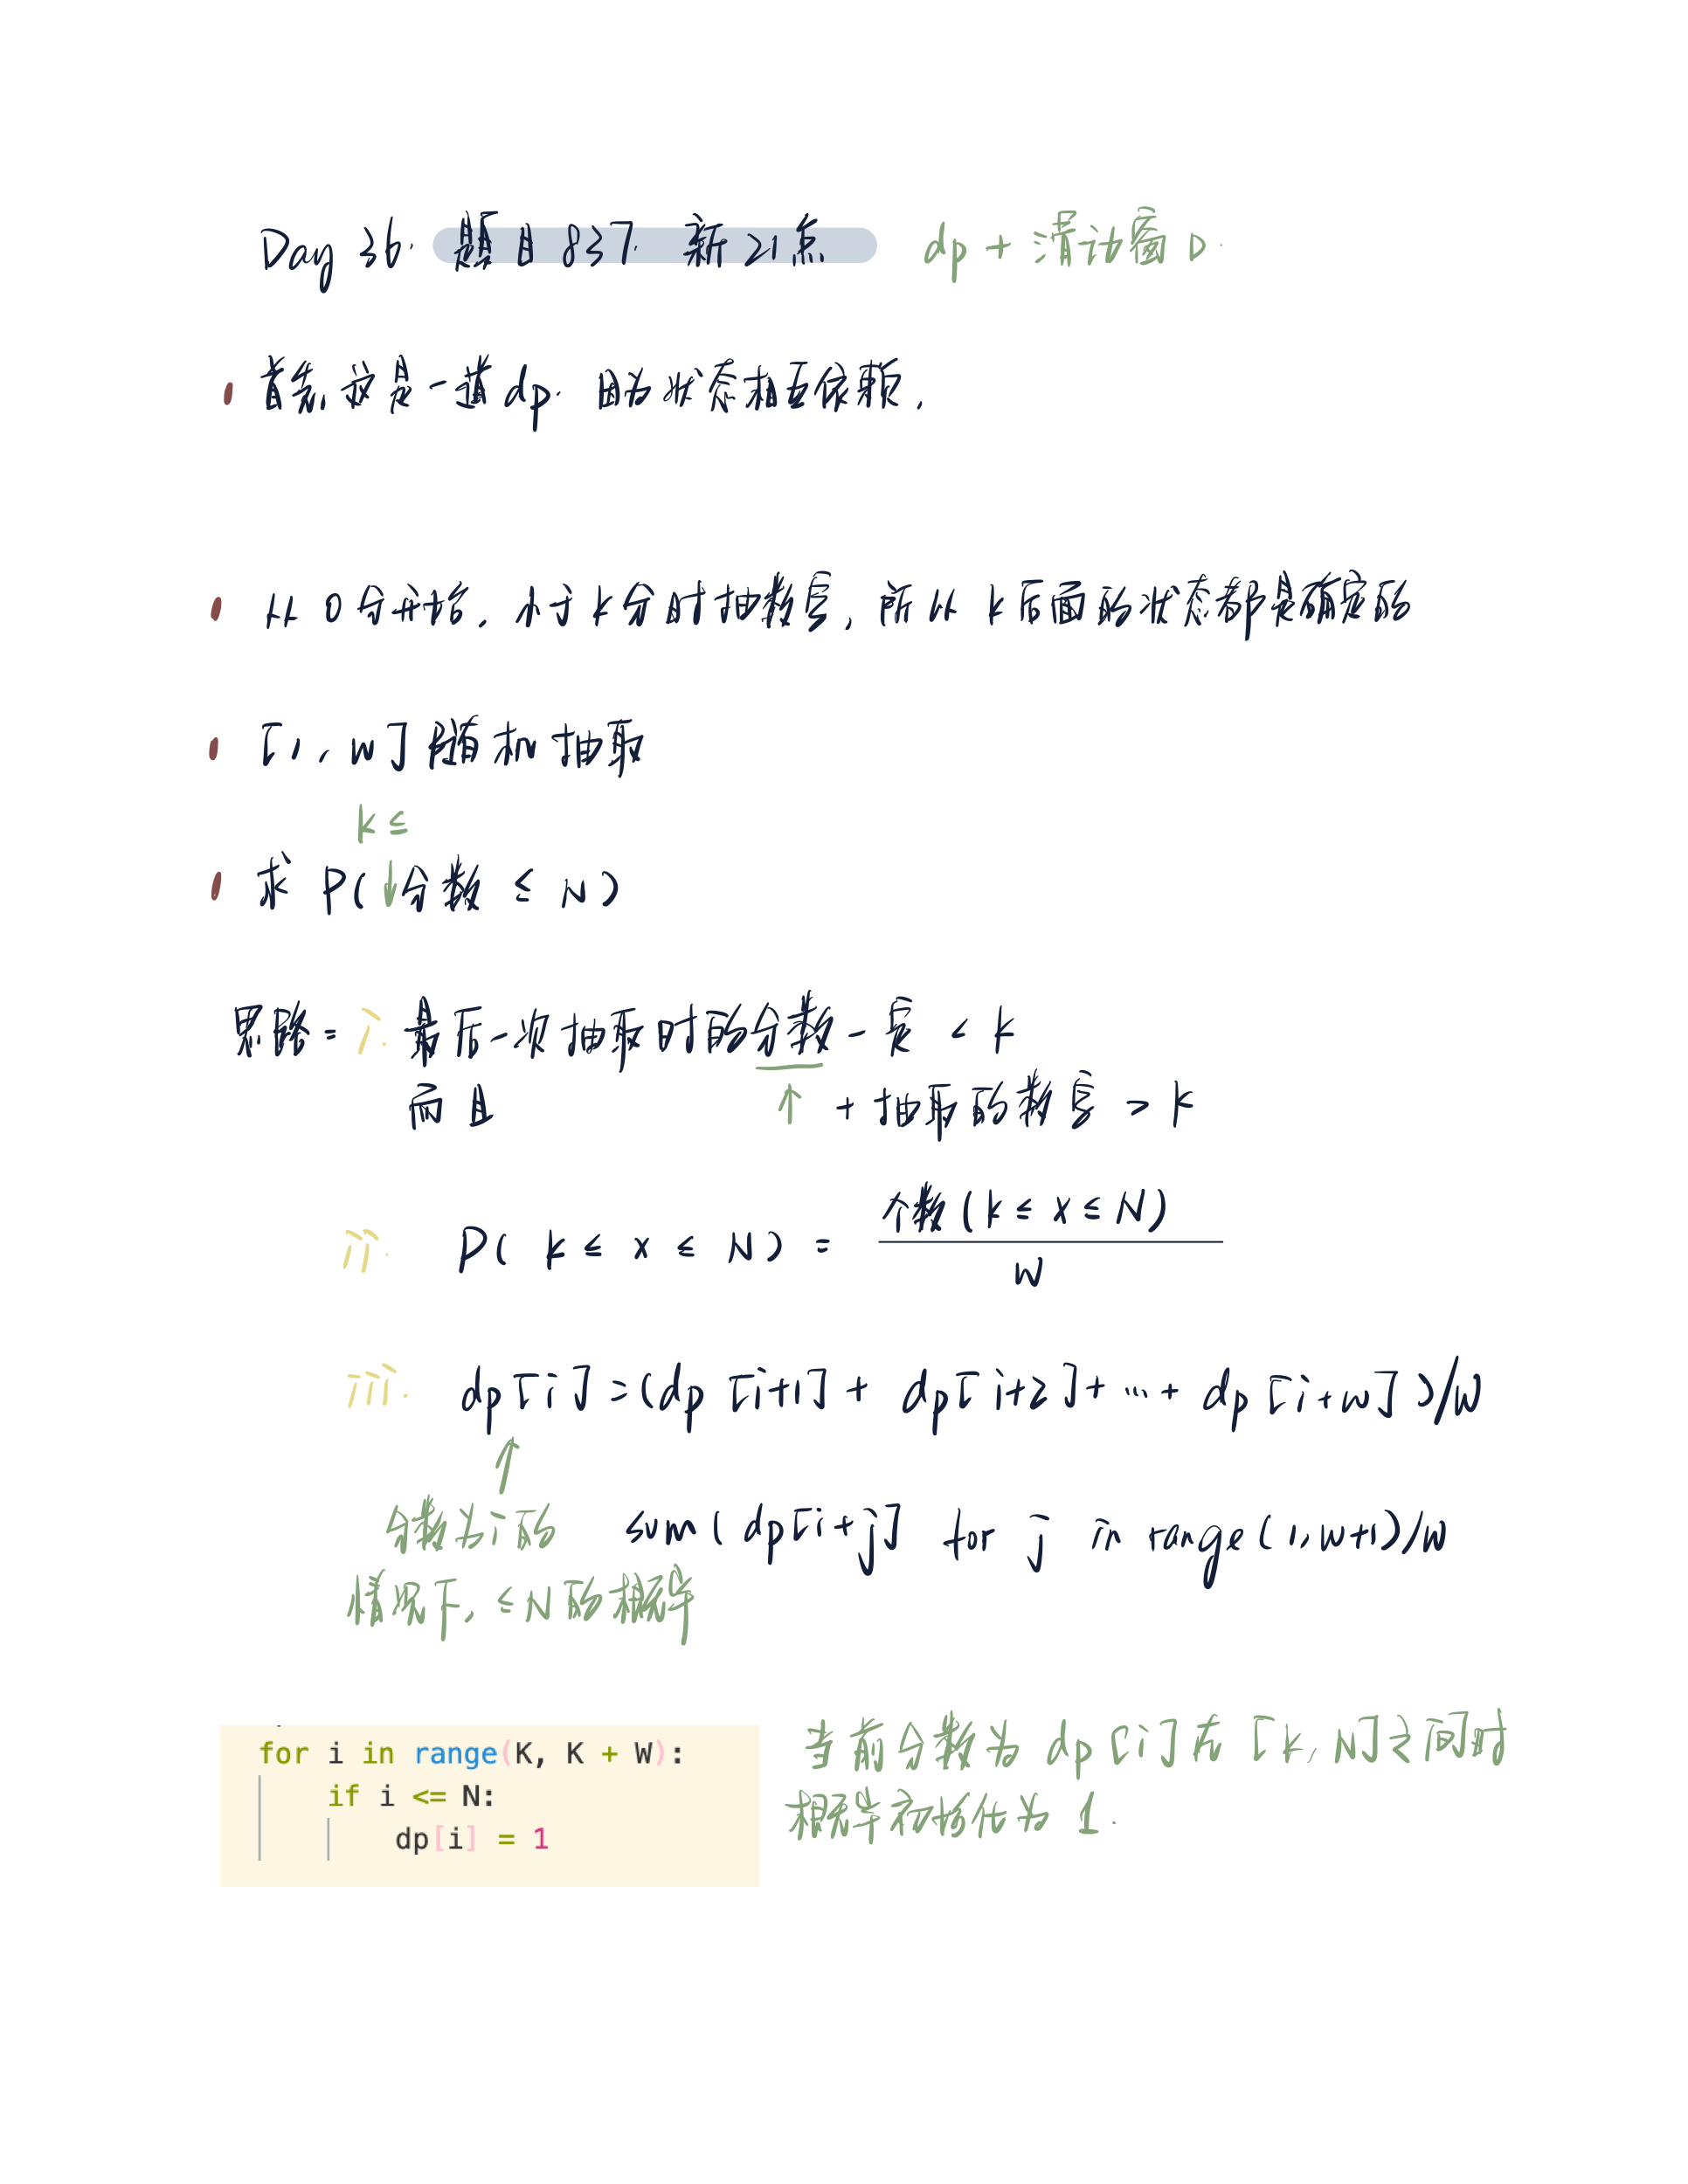 Day 36. 题目837. 新21点 dp + 滑动窗口.
首先, 这是一道 dp. 因为状态相互依赖.
从 0 分开始. 小于 k 分时抽数字, 所以 k 后面的状态都是确定的
[1, w] 随机抽取
k ≤
求 P( ↓ 分数 ≤ N )
思路: i. 最后一次抽取时的分数一定 < k
而且 ↑ + 抽取的数字 > k
ii. P( k ≤ x ≤ N ) = 个数( k ≤ x ≤ N ) / w
iii. dp[i] = (dp[i+1] + dp[i+2] + ... + dp[i+w])/w
↑
分数为 i 的 sum( dp[i+j] for j in range(1, w+1)/w
情况下, ≤ N 的概率
for i in range(K, K + W):
if i <= N:
dp[i] = 1
当前分数为 dp[i] 在 [k, N] 之间时
概率初始化为 1.